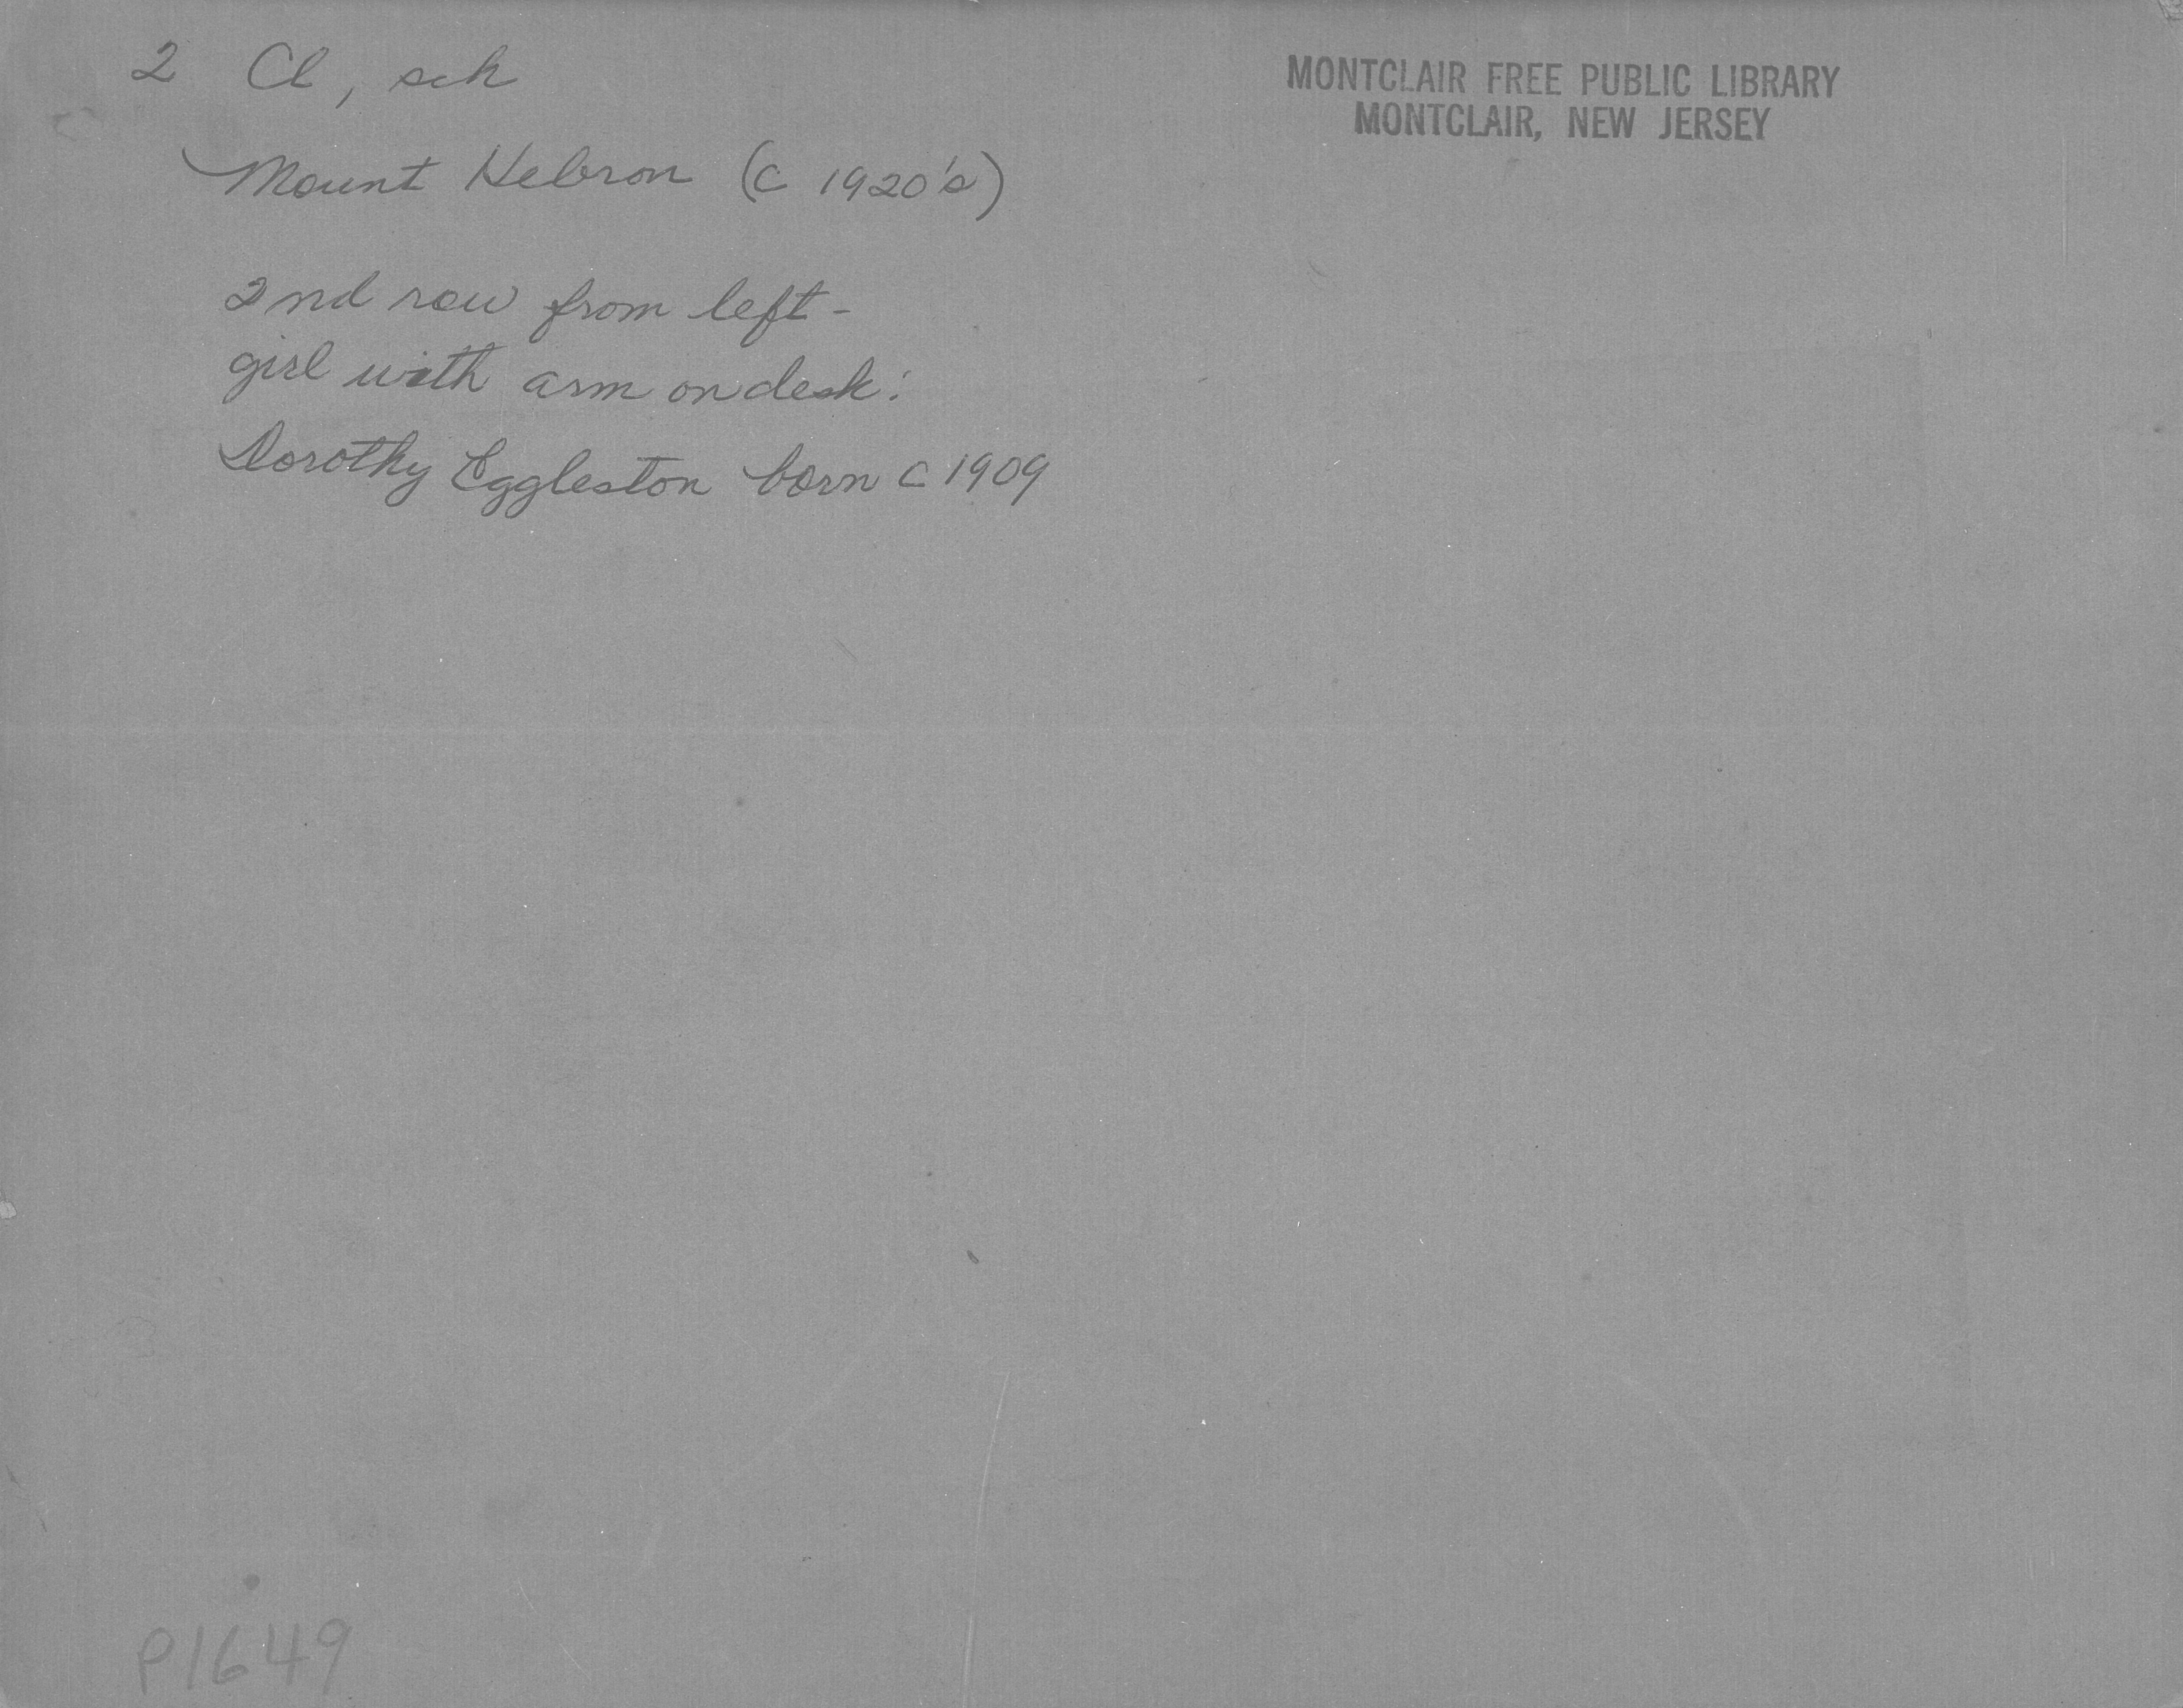 2 Cl, sch
MONTCLAIR FREE PUBLIC LIBRARY
MONTCLAIR, NEW JERSEY
Mount Hebron (c 1920's)
2nd row from left-
girl with arm on desk:
Dorothy Eggleston born c 1909
P1649